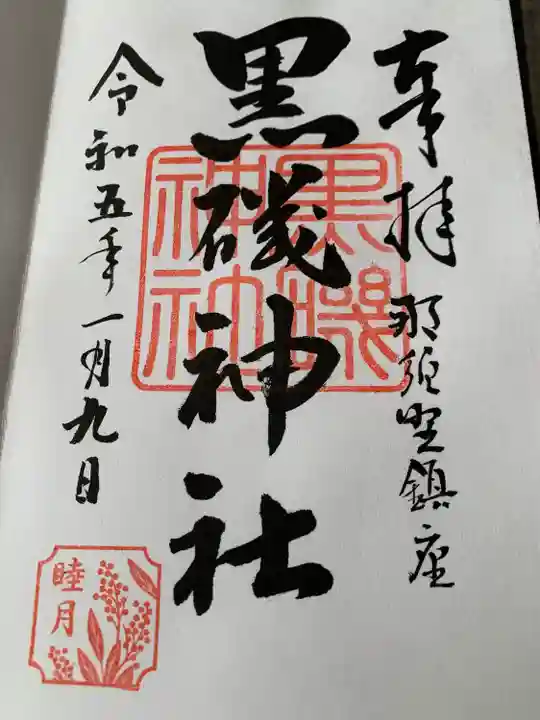 奉拝 那須野鎮座
黒磯神社
黒磯神社
令和五年一月九日
睦月